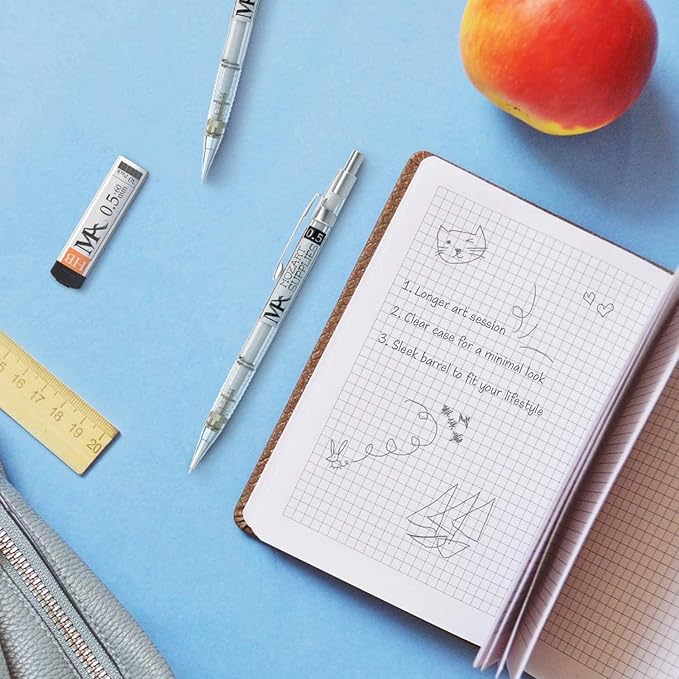 MA
HB
MA
0.5mm
60
0.5
MOZART
SUPPLIES
MA
1. Longer art session
2. Clear case for a minimal look
3. Sleek barrel to fit your lifestyle
15 16 17 18 19 20